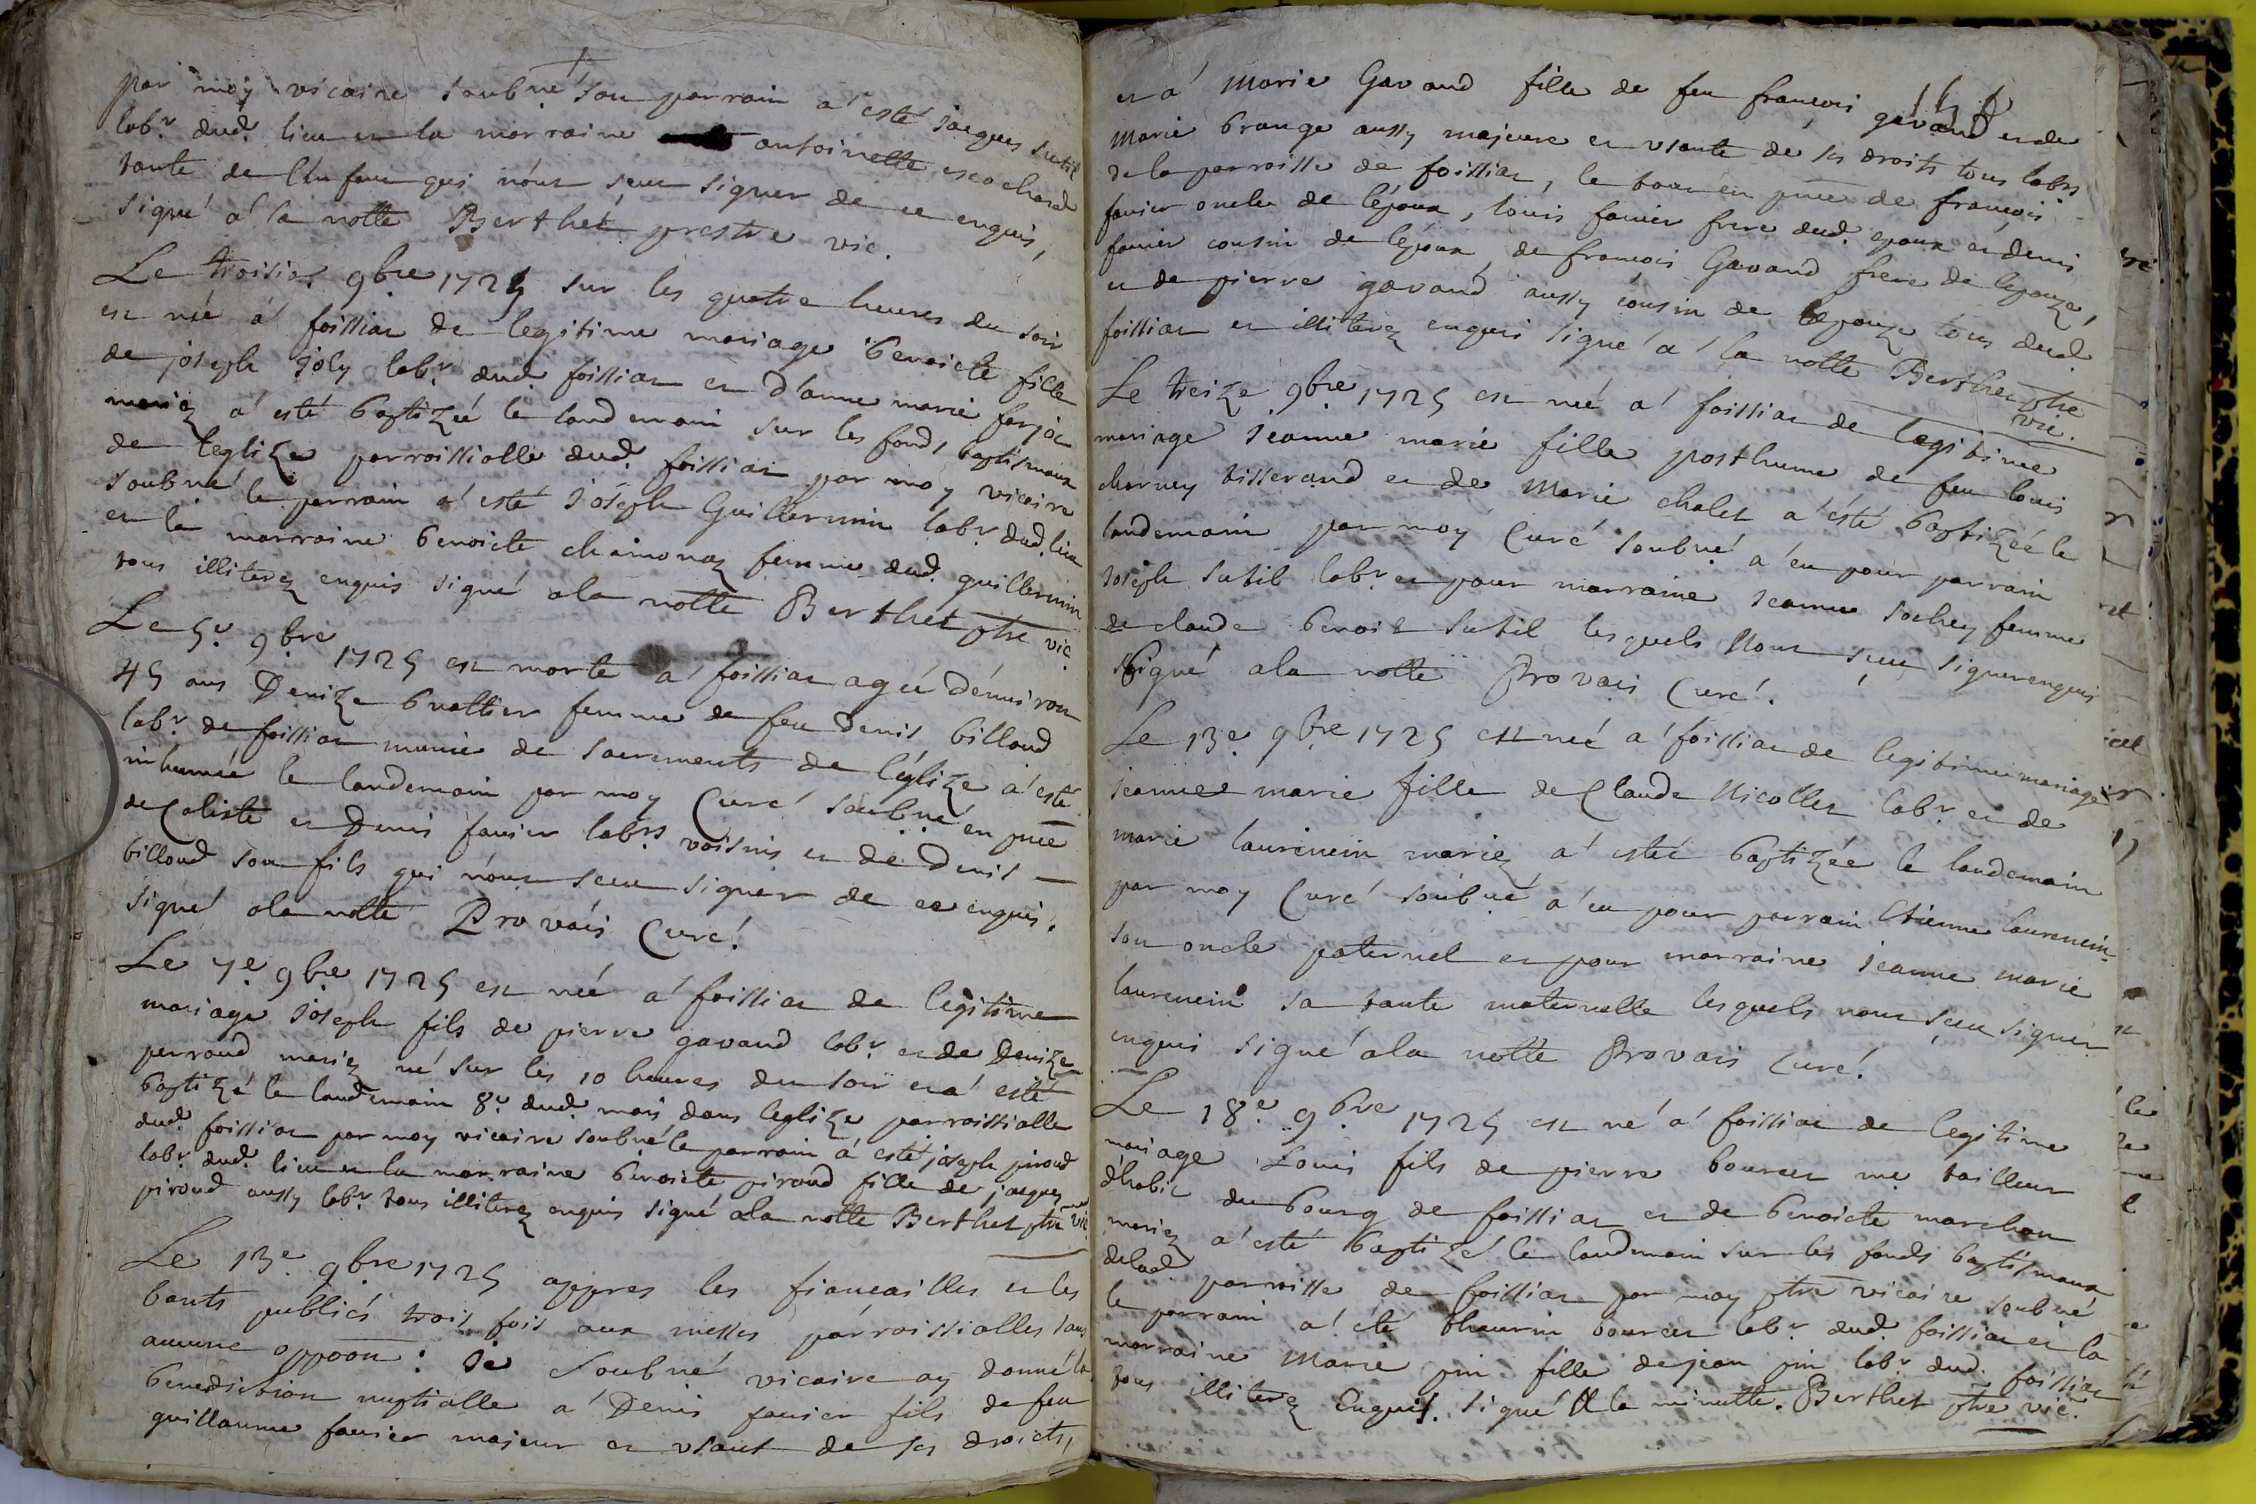 par moy vicaire soubné son parrain a esté jacques sutil
labr. dud. lieu et la marraine antoinette escochard
tante de l'enfant qui n'ont sceu signer de ce enquis,
signé a la notte Berthet prestre vic.
Le troisie 9bre 1725 sur les quatre heures du soir
est née a foissiat de legitime mariage benoicte fille
de joseph joly labr. dud. foissiat et d'anne marie farjot
mariez a esté baptizéé le landemain sur les fonds baptismaux
de leglize parroissialle dud. foissiat par moy vicaire
soubné le parrain a esté joseph Guillermin labr. dud. lieu
et la marraine benoicte chamonaz femme dud. guillermin
tous illiterez enquis signé a la notte Berthet ptre vic.
Le 5e. 9bre 1725 est morte a foissiat agéé d'environ
45 ans Denize brottier femme de feu denis billoud
labr. de foissiat munie de sacrements de l'églize a esté
inhumée le landemain par moy Curé soubné en pnce
de Caliste et Denis favier labrs voisins et de denis
billoud son fils qui n'ont sceu signer de ce enquis.
signé a la notte Provais Curé.
Le 7e 9bre 1725 est né a foissiat de legitime
mariage joseph fils de pierre gavand labr. et de Denize
perroud mariez né sur les 10 heures du soir et a esté
baptizé le landemain 8e. dud. mois dans leglize parroissialle
dud. foissiat par moy vicaire soubné le parrain a esté joseph piroud
labr. dud. lieu et la marraine benoicte piroud fille de jacques
piroud aussy labr. tous illiterez enquis signé a la notte Berthet ptre vic.
Le 13e. 9bre 1725 appres les fiançailles et les
bants publiés trois fois aux messes parroissialles sans
aucune oppoon : je soubné vicaire ay donné la
benediction nuptialle a Denis favier fils de feu
guillaume favier majeur et usant de ses droicts,
et a Marie Gavand fille de feu françois gavand et de
Marie brange aussy majeure et usante de ses droits tous labrs
de la parroisse de foissiat, le tout en pnce de françois
favier oncle de l'époux, louis favier frere dud. epoux et denis
favier cousin de l'époux, de françois Gavand frere de lepouze,
et de pierre gavand aussy cousin de lepouze tous dud.
foissiat et illiterez enquis signé a la notte Berthet ptre
vic.
Le treize 9bre 1725 est née a foissiat de legitime
mariage jeanne marie fille posthume de feu louis
charney tisserand et de Marie chalet a esté baptizéé le
landemain par moy Curé soubné a eu pour parrain
joseph sutil labr. et pour marraine jeanne sochey femme
de claude benoit sutil lesquels n'ont sceu signer enquis
signé a la notte Provais Curé.
Le 13e 9bre 1725 est née a foissiat de legitime mariage
jeanne marie fille de Claude Nicollet labr. et de
marie laurencin mariez a estéé baptizée le landemain
par moy Curé soubné a eu pour parrain Etienne laurencin
son oncle paternel et pour marraine jeanne marie
laurencin sa tante maternelle lesquels n'ont sceu signer
enquis signé a la notte Provais Curé.
Le 18e. 9bre 1725 est né a foissiat de legitime
mariage Louis fils de pierre bourcet me tailleur
d'habit du bourg de foissiat et de benoicte marchon
mariez a esté baptizé le landemain sur les fonds baptismaux
delad parroisse de foissiat par moy ptre vicaire soubné
le parrain a été thaurin bourcet labr. dud. foissiat et la
marraine Marie pin fille de jean pin labr. dud. foissiat
tous illiterez Enquis. signé A la minutte. Berthet ptre vic.